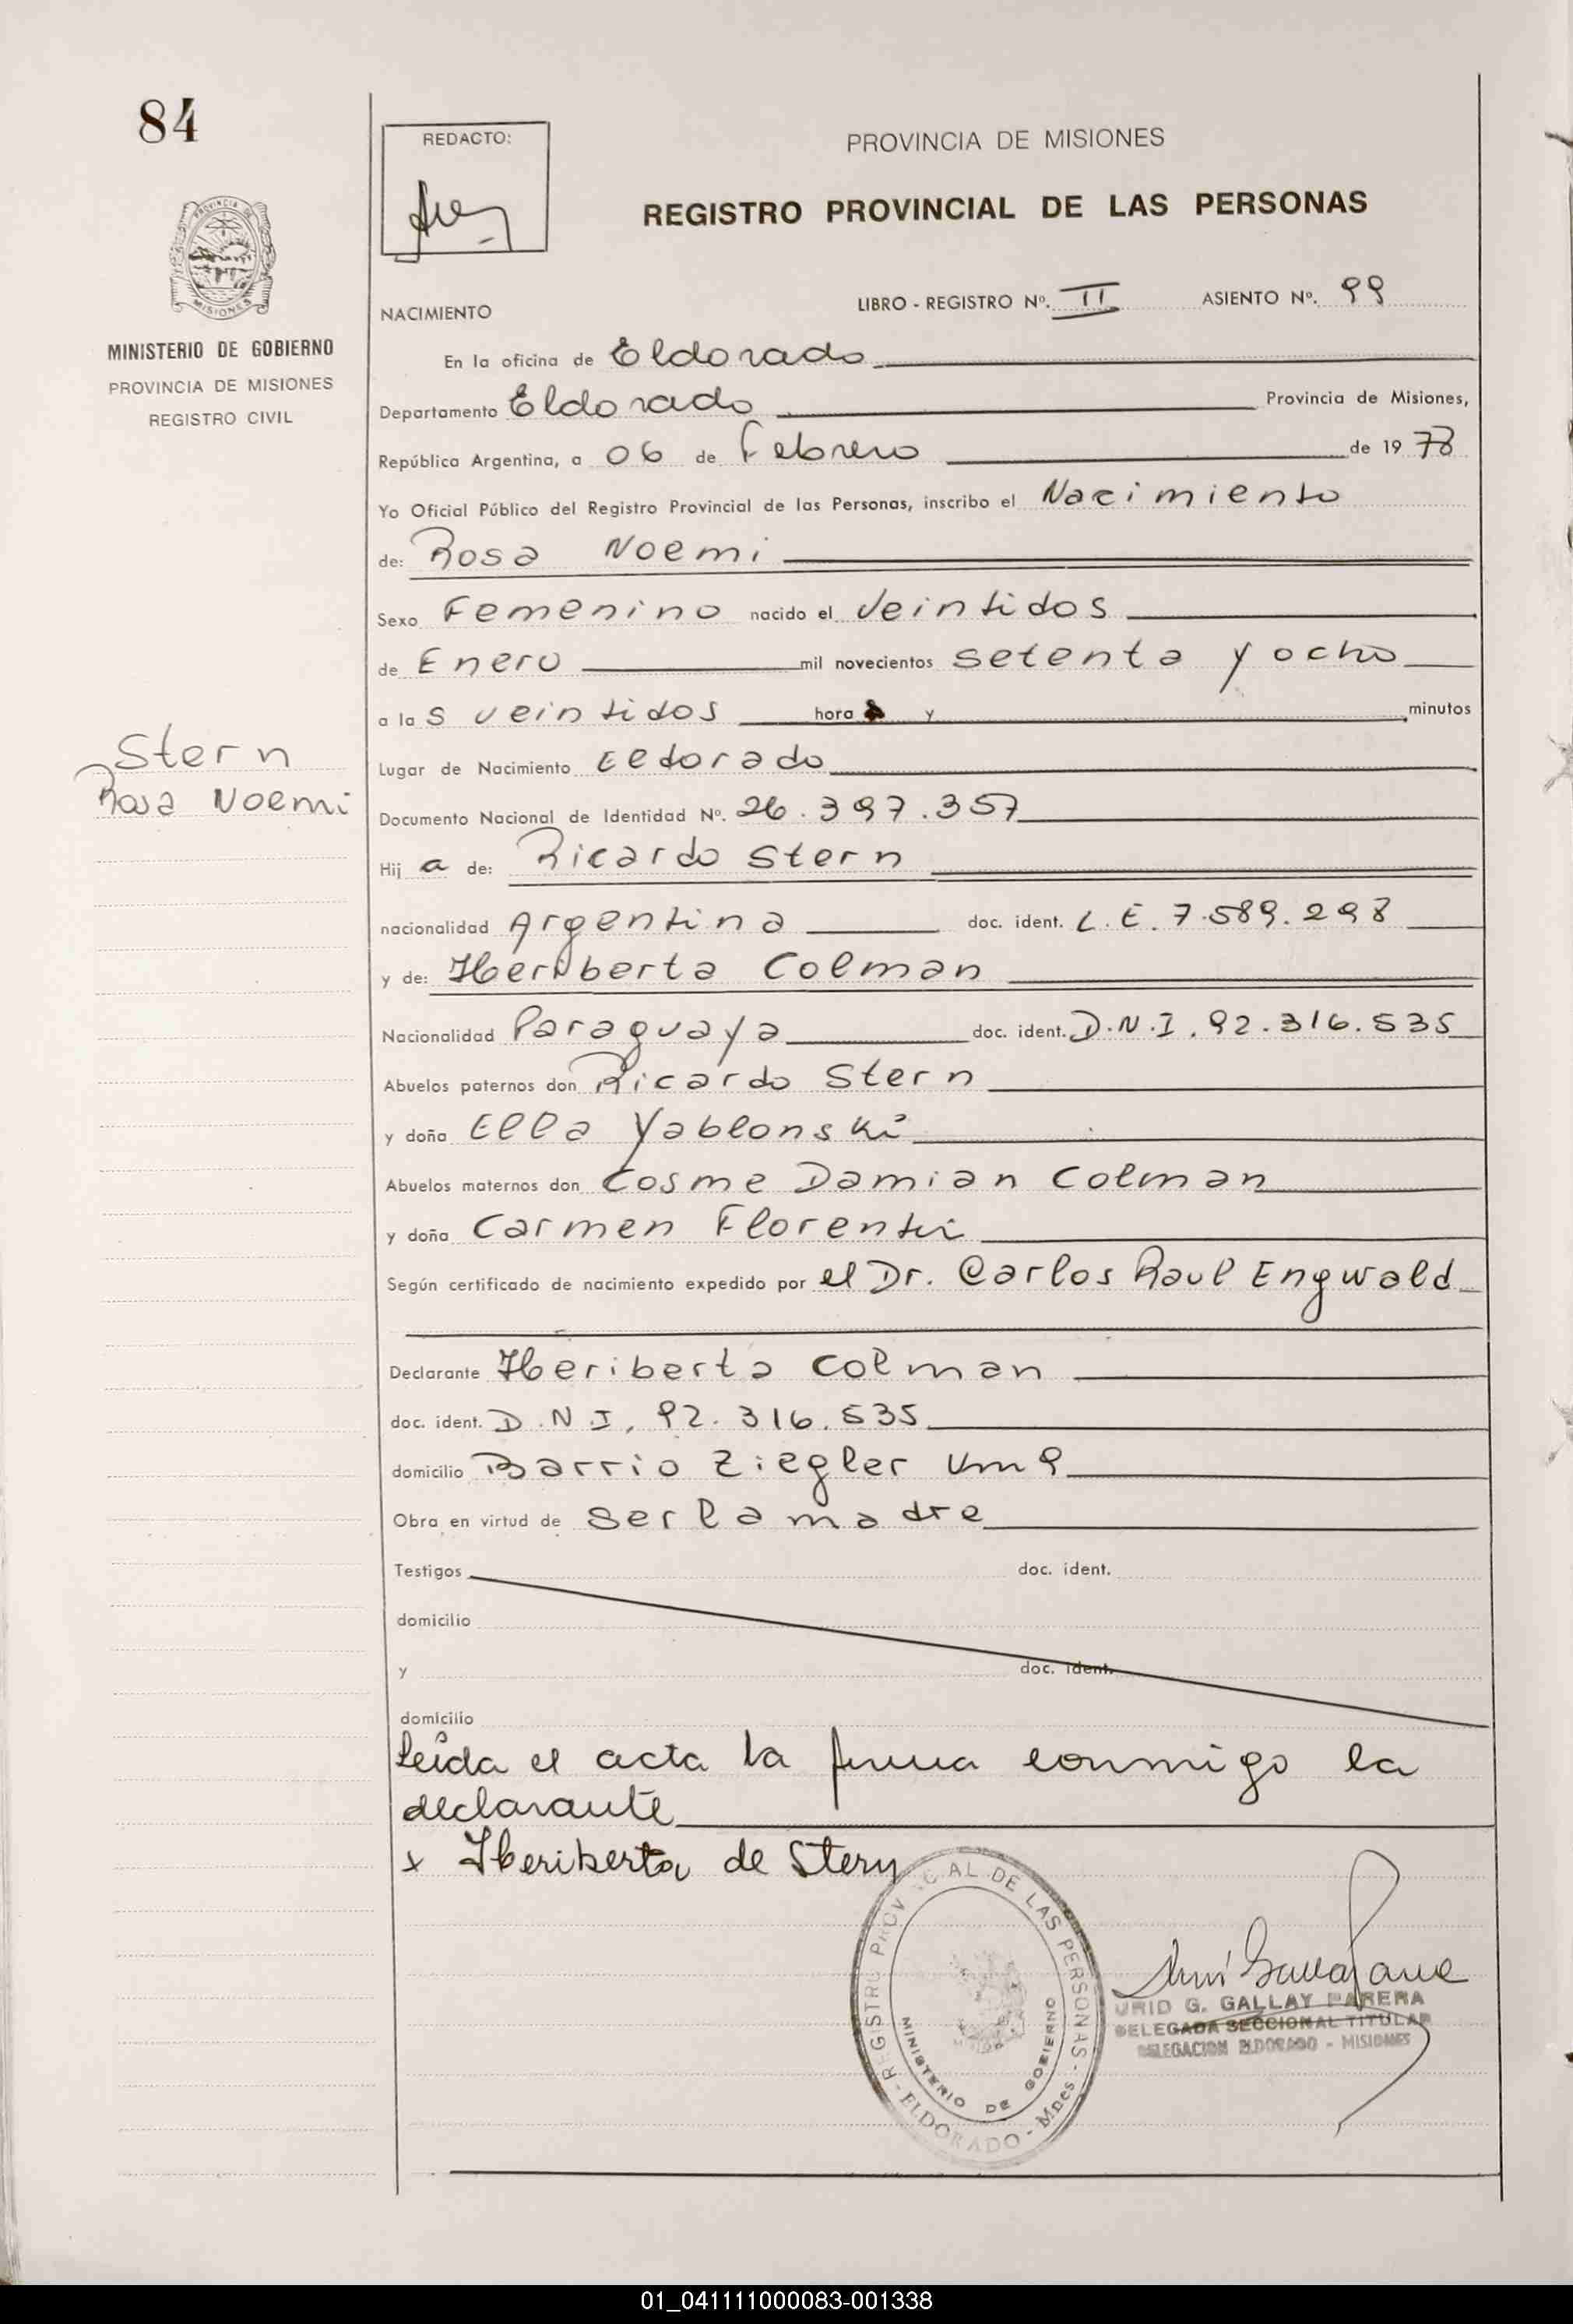 84
REDACTO:
PROVINCIA DE MISIONES
REGISTRO PROVINCIAL DE LAS PERSONAS
PROVINCIA DE
MISIONES
MINISTERIO DE GOBIERNO
PROVINCIA DE MISIONES
REGISTRO CIVIL
NACIMIENTO LIBRO - REGISTRO Nº. II ASIENTO Nº. 99
En la oficina de Eldorado
Departamento Eldorado Provincia de Misiones,
República Argentina, a 06 de Febrero de 1978
Yo Oficial Público del Registro Provincial de las Personas, inscribo el Nacimiento
de: Rosa Noemi
Sexo Femenino nacido el Veintidos
de Enero mil novecientos setenta y ocho
a las veintidos hora y minutos
Stern
Rosa Noemi
Lugar de Nacimiento Eldorado
Documento Nacional de Identidad Nº. 26.397.357
Hija de: Ricardo Stern
nacionalidad Argentina doc. ident. L.E. 7.589.298
y de: Heriberta Colman
Nacionalidad Paraguaya doc. ident. D.N.I. 92.316.535
Abuelos paternos don Ricardo Stern
y doña Ella Yablonski
Abuelos maternos don Cosme Damian Colman
y doña Carmen Florentin
Según certificado de nacimiento expedido por el Dr. Carlos Raul Engwald
Declarante Heriberta Colman
doc. ident. D.N.I. 92.316.535
domicilio Barrio Ziegler Km 9
Obra en virtud de ser la madre
Testigos doc. ident.
domicilio
y doc. ident.
domicilio
Leída el acta la firma conmigo la
declarante
x Heriberta de Stern
REGISTRO PROVINCIAL DE LAS PERSONAS - ELDORADO - Mnes -
MINISTERIO DE GOBIERNO
URID G. GALLAY PARERA
DELEGADA SECCIONAL TITULAR
DELEGACION ELDORADO - MISIONES
01_041111000083-001338